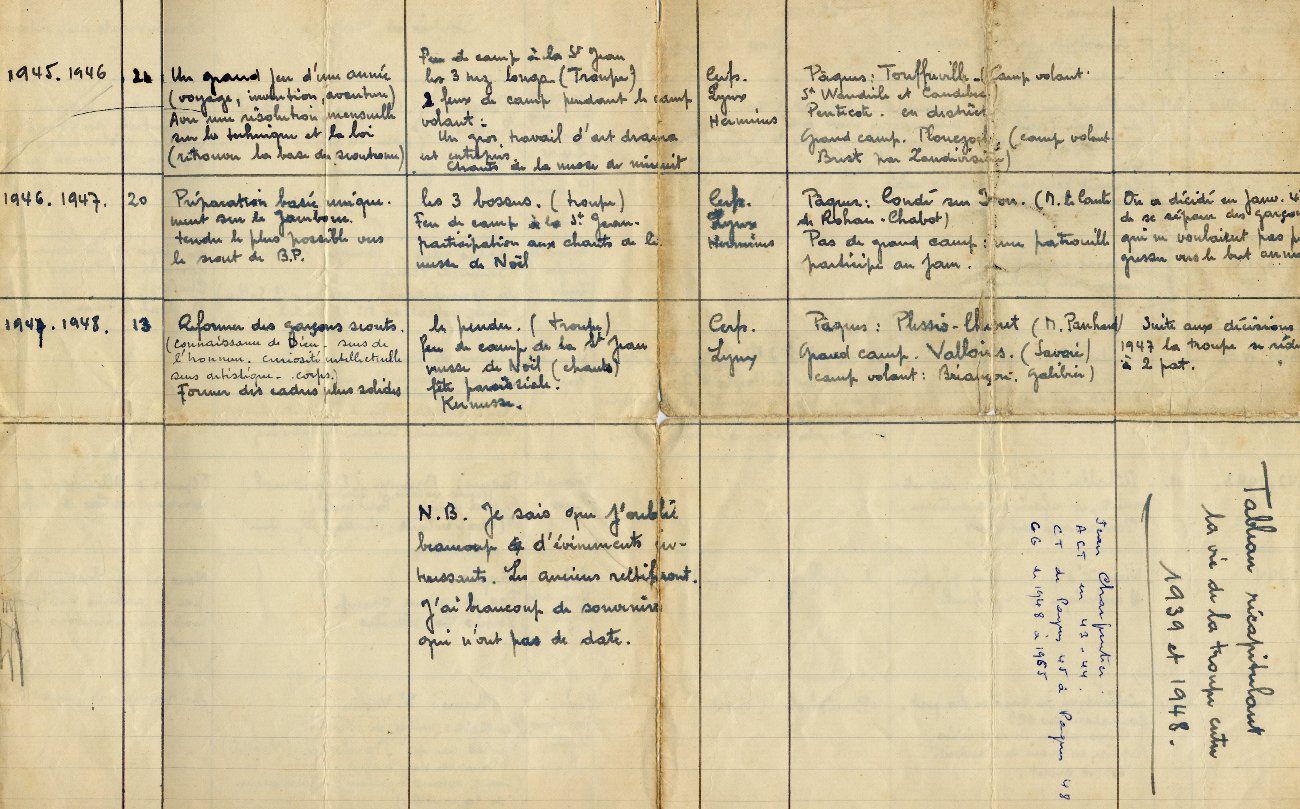 1945. 1946
Un grand jeu d'une année
(voyage, invention, aventure)
Avec une résolution mensuelle
sur la technique et la loi
(retrouver la base du scoutisme)
Feu de camp à la St Jean
les 3 longs (Troupe)
2 feux de camp pendant le camp
volant.
Un gros travail d'art drama
est entrepris.
Chants de la messe de minuit
Cerfs.
Lynx
Hermines
Pâques: Touffreville (Camp volant.
St Wandrille et Caudebec)
Pentecôte. en district
Grand camp. (camp volant
Brest par Landivisiau)
1946. 1947.
20
Préparation basée unique-
ment sur le Jamboree.
tendre le plus possible vers
le scout de B.P.
les 3 bossus. (troupe)
Feu de camp à la St Jean-
participation aux chants de la
messe de Noël
Cerfs.
Lynx
Hermines
Pâques: Condé sur Iton. (M. le Comte
de Rohan-Chabot)
Pas de grand camp: une patrouille
participe au Jam.
On a décidé en Janv. 4
de se séparer des garçons
qui ne voulaient pas p
gresser vers le but
1947. 1948.
13
Reformer des garçons scouts.
(connaissance de Dieu - sens de
l'honneur. curiosité intellectuelle
sens artistique - corps.)
Former des cadres plus solides
le pendu. (troupe)
feu de camp de la St Jean
messe de Noël (chants)
fête paroissiale.
Kermesse.
Cerfs.
Lynx
Pâques: (M. Panhard)
Grand camp. Valloires. (Savoie)
camp volant: Briançon. Galibier)
Suite aux décisions
1947 la troupe se rédu
à 2 pat.
N.B. Je sais que j'oublie
beaucoup d'événements in-
téressants. Les anciens rectifieront.
J'ai beaucoup de souvenirs
qui n'ont pas de date.
Tableau récapitulant
la vie de la troupe entre
1939 et 1948.
Jean Charpentier.
ACT en 43-44.
CT de Pâques 45 à Pâques 48
CG. de 1948 à 1955